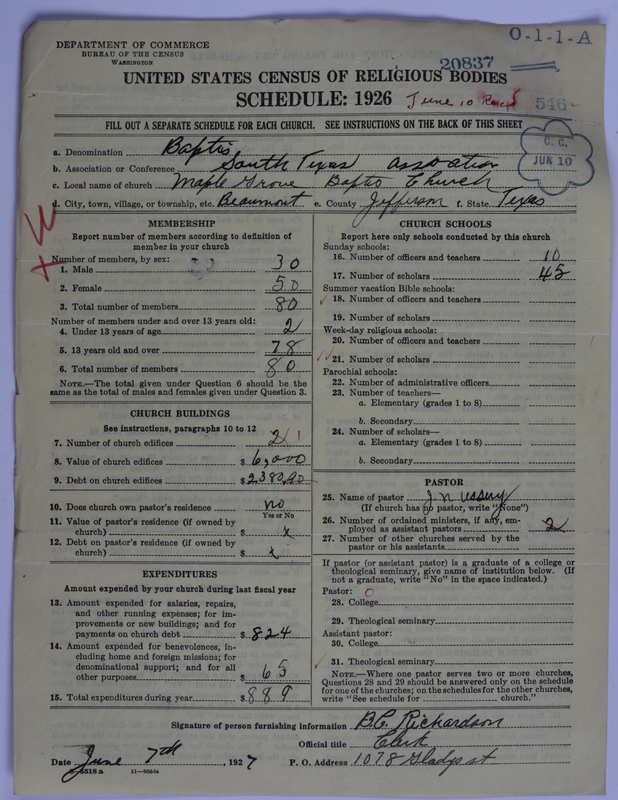 O-1-1-A
DEPARTMENT OF COMMERCE
BUREAU OF THE CENSUS
WASHINGTON
20837
UNITED STATES CENSUS OF RELIGIOUS BODIES
SCHEDULE: 1926
June 10
546
FILL OUT A SEPARATE SCHEDULE FOR EACH CHURCH. SEE INSTRUCTIONS ON THE BACK OF THIS SHEET
C. C.
JUN 10
a. Denomination Baptis
b. Association or Conference South Texas assoation
c. Local name of church Maple Grove Baptis Church
d. City, town, village, or township, etc. Beaumont e. County Jefferson f. State Texas
MEMBERSHIP
Report number of members according to definition of member in your church
Number of members, by sex:
1. Male 30
2. Female 50
3. Total number of members 80
Number of members under and over 13 years old:
4. Under 13 years of age 2
5. 13 years old and over 78
6. Total number of members 80
NOTE.—The total given under Question 6 should be the
same as the total of males and females given under Question 3.
CHURCH BUILDINGS
See instructions, paragraphs 10 to 12
7. Number of church edifices 2 1
8. Value of church edifices $ 6,000
9. Debt on church edifices $ 2380.00
10. Does church own pastor's residence no
Yes or No
11. Value of pastor's residence (if owned by
church) $ x
12. Debt on pastor's residence (if owned by
church) $ x
EXPENDITURES
Amount expended by your church during last fiscal year
13. Amount expended for salaries, repairs,
and other running expenses; for im-
provements or new buildings; and for
payments on church debt $ 824
14. Amount expended for benevolences, in-
cluding home and foreign missions; for
denominational support; and for all
other purposes $ 65
15. Total expenditures during year $ 889
CHURCH SCHOOLS
Report here only schools conducted by this church
Sunday schools:
16. Number of officers and teachers 10
17. Number of scholars 45
Summer vacation Bible schools:
18. Number of officers and teachers
19. Number of scholars
Week-day religious schools:
20. Number of officers and teachers
21. Number of scholars
Parochial schools:
22. Number of administrative officers
23. Number of teachers—
a. Elementary (grades 1 to 8)
b. Secondary
24. Number of scholars—
a. Elementary (grades 1 to 8)
b. Secondary
PASTOR
25. Name of pastor J. N. Ussery
(If church has no pastor, write "None")
26. Number of ordained ministers, if any, em-
ployed as assistant pastors 2
27. Number of other churches served by the
pastor or his assistants
If pastor (or assistant pastor) is a graduate of a college or
theological seminary, give name of institution below. (If
not a graduate, write "No" in the space indicated.)
Pastor: 0
28. College
29. Theological seminary
Assistant pastor:
30. College
31. Theological seminary
NOTE.—Where one pastor serves two or more churches,
Questions 28 and 29 should be answered only on the schedule
for one of the churches; on the schedules for the other churches,
write "See schedule for church."
Signature of person furnishing information B.C. Richardson
Official title Clerk
Date June 7th, 1927 P. O. Address 1078 Gladys st
8518 a 11-9084a